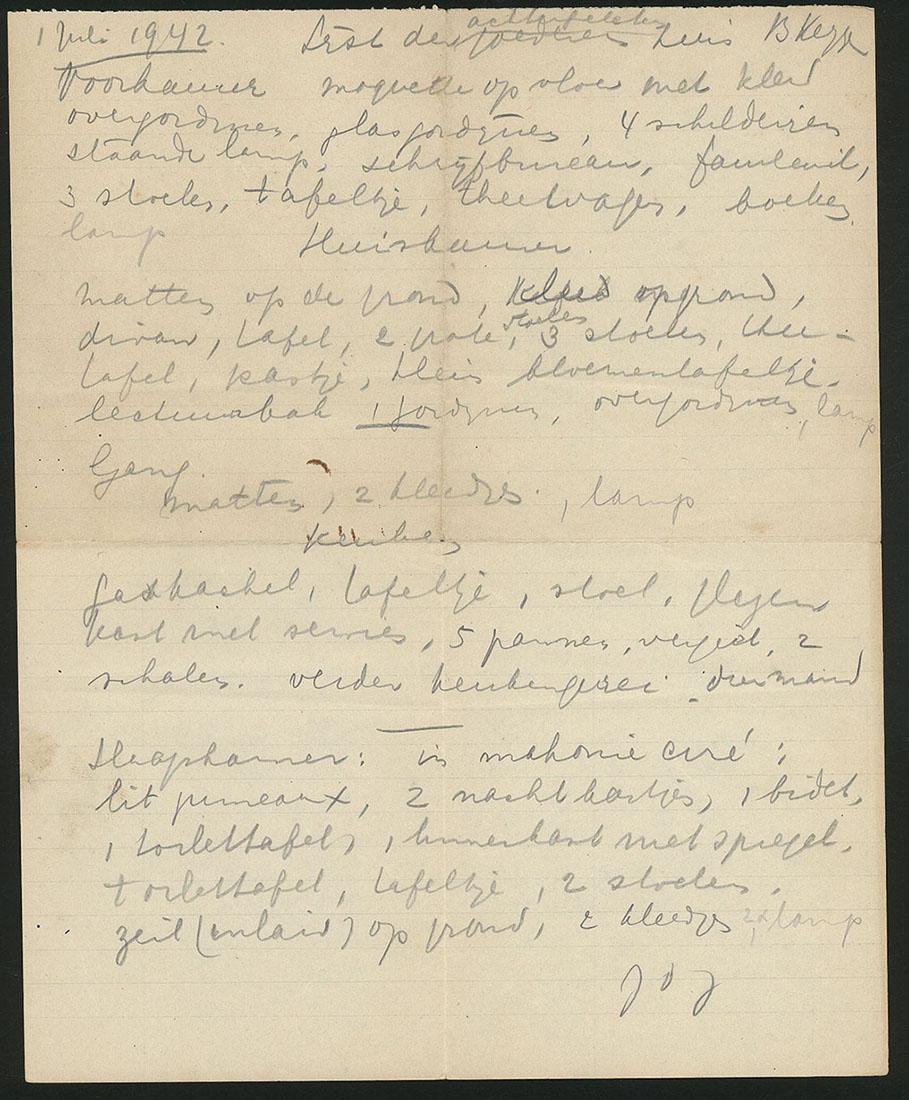 1 Juli 1942. Lijst der goederen huis B Kegge
achtergelaten
Voorkamer moquette op vloer met kleed
overgordynen, glasgordynen, 4 schilderijen
staande lamp, schryfbureau, fauteuil,
3 stoelen, tafeltje, theewagen, boeken
lamp Huiskamer.
matten op de grond, kleed op grond,
divan, tafel, 2 grote stoelen, 3 stoelen, thee-
tafel, kastje, klein bloementafeltje.
lectuurbak 1 gordynen, overgordynen, lamp
Gang.
matten, 2 kleedjes, lamp
Keuken
gaskachel, tafeltje, stoel, vliegen
kast met servies, 5 pannen, vergiet, 2
schalen. verder keukengerei
Slaapkamer: in mahonie ciré;
lit jumeaux, 2 nachtkastjes, 1 bidet,
1 toilettafel, 1 linnenkast met spiegel,
toilettafel, tafeltje, 2 stoelen,
zeil (inlaid) op grond, 2 kleedjes, 2x lamp